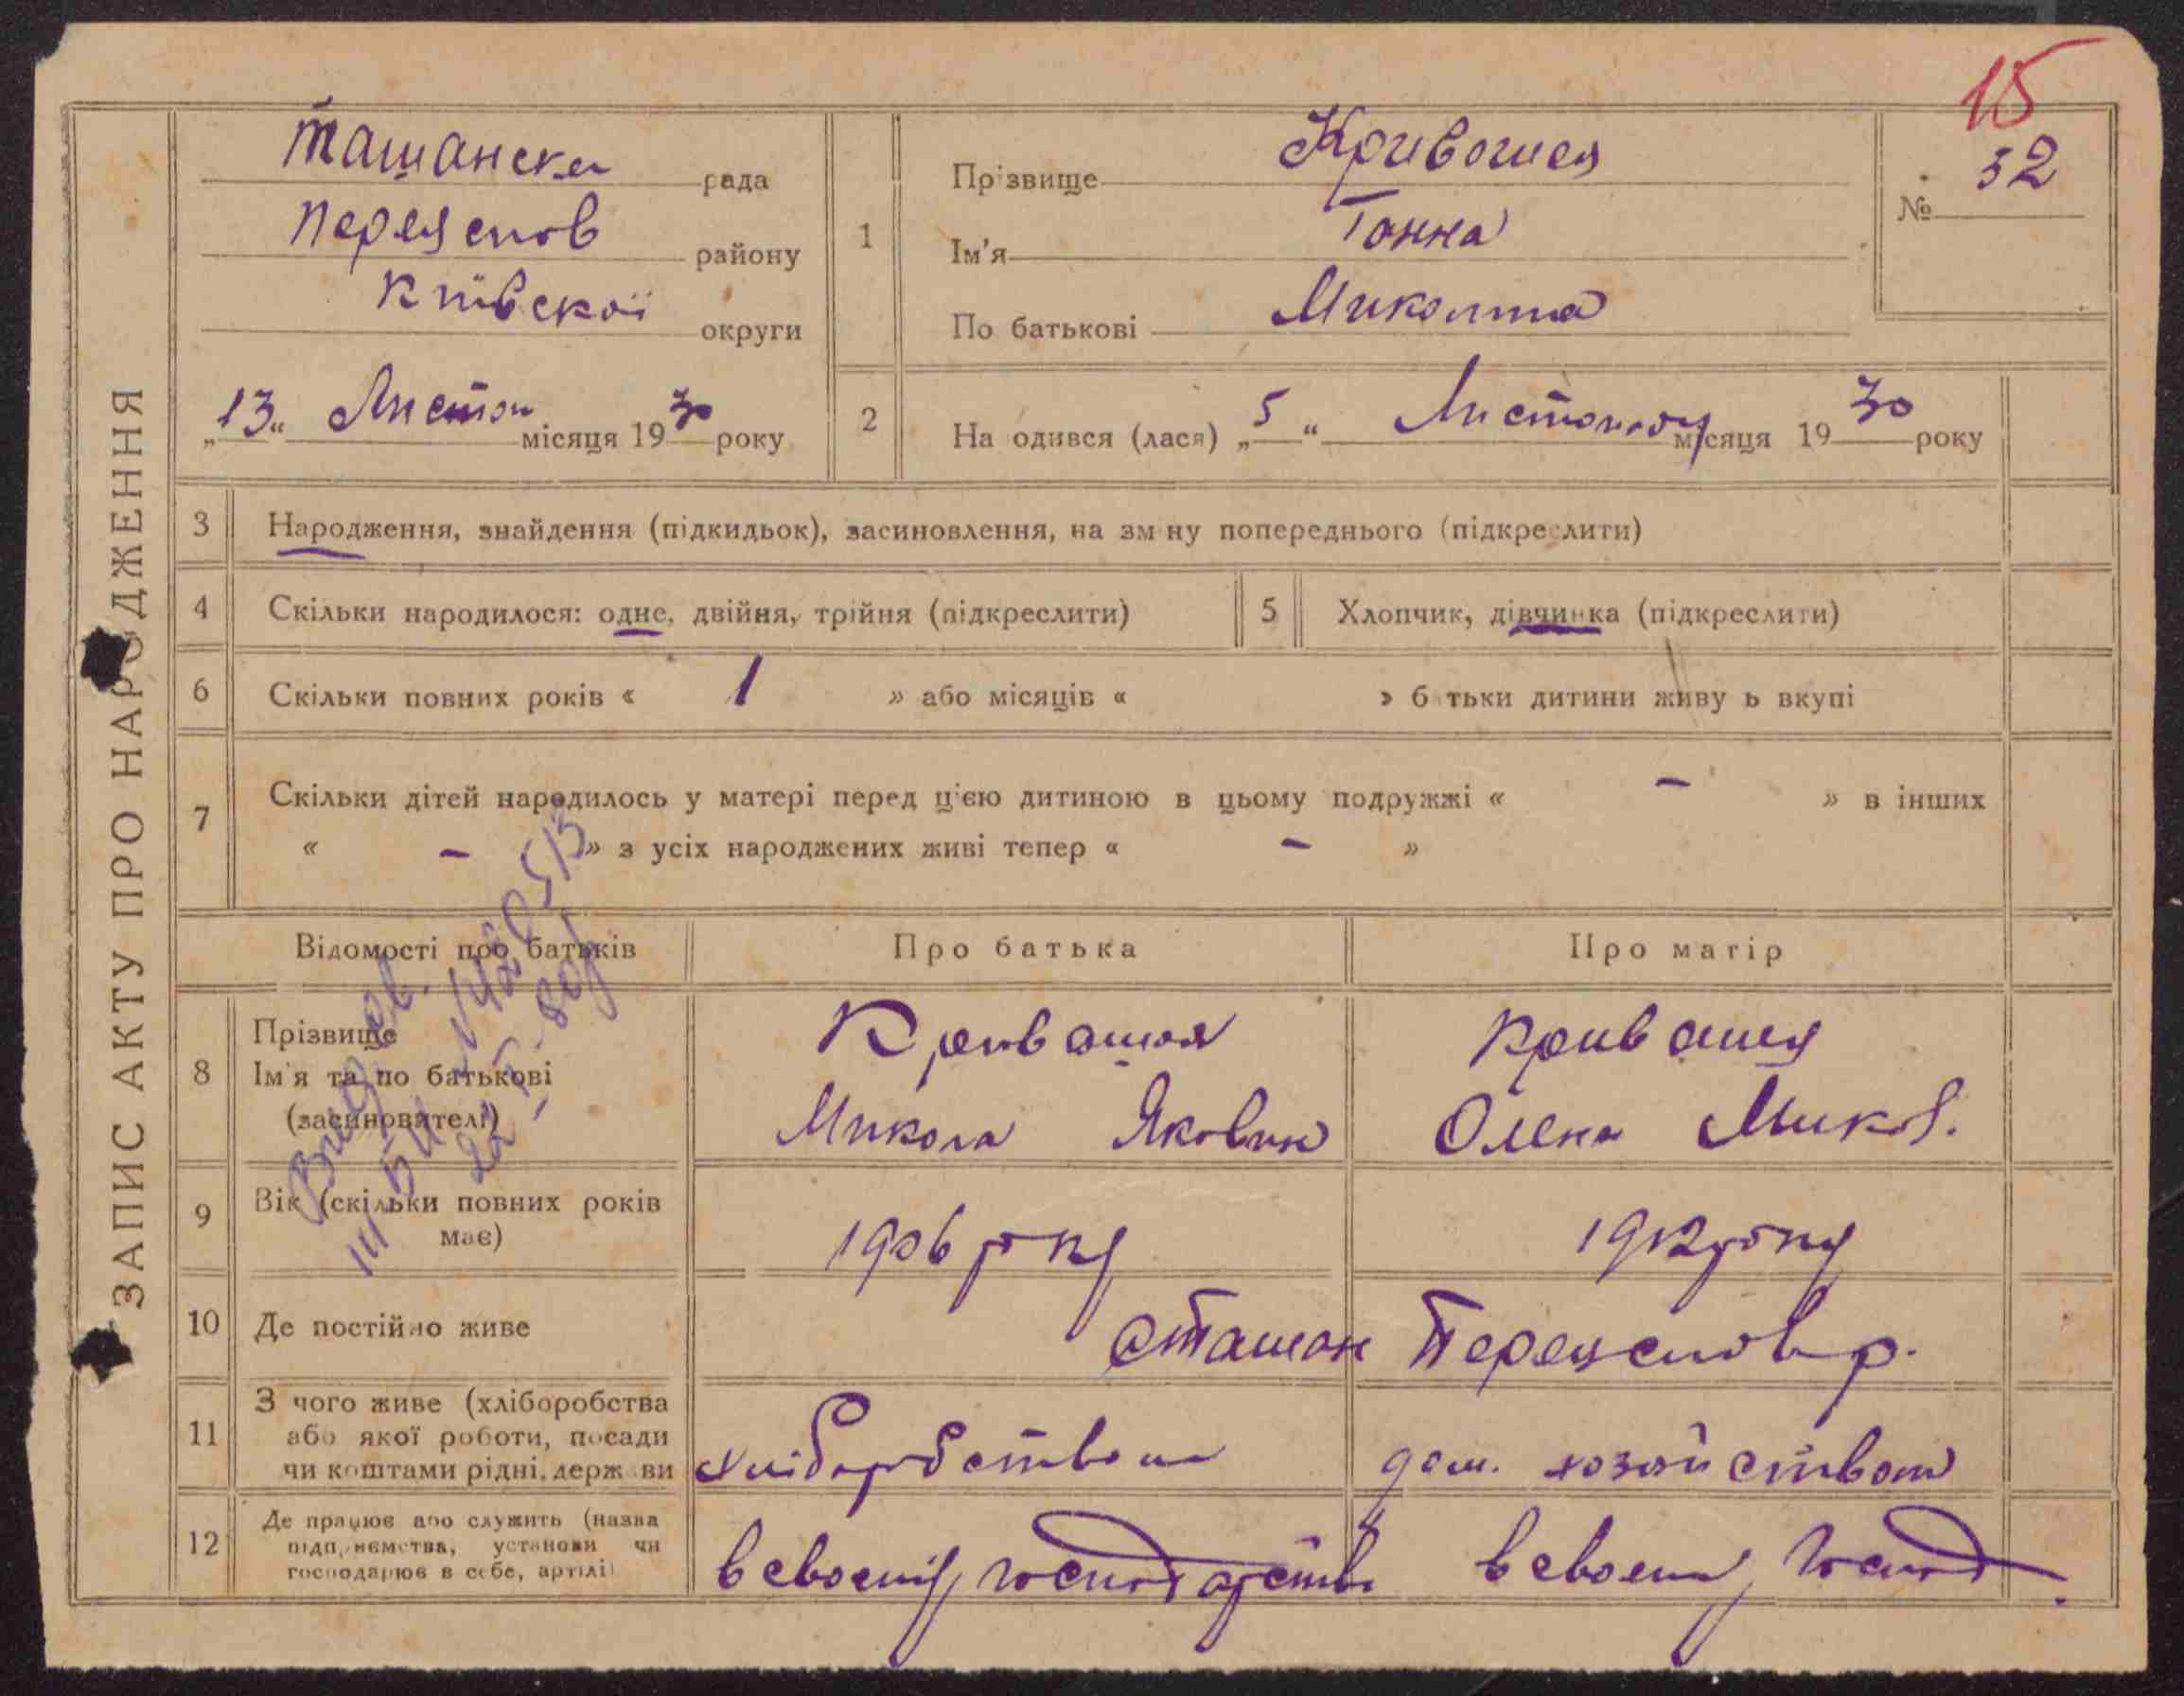 15
ЗАПИС АКТУ ПРО НАРОДЖЕННЯ
Ташанска рада
Переяслов району
Київскої округи
„13“ Листоп місяця 1930 року
1
Прізвище Кривошея
Ім'я Ганна
По батькові Миколівна
№ 32
2
На одився (лася) „5“ Листопаду місяця 1930 року
3 Народження, знайдення (підкидьок), засиновлення, на зм ну попереднього (підкреслити)
4 Скільки народилося: одне, двійня, трійня (підкреслити)
5 Хлопчик, дівчинка (підкреслити)
6 Скільки повних років « 1 » або місяців « » б тьки дитини живу ь вкупі
7 Скільки дітей народилось у матері перед ц'єю дитиною в цьому подружжі « – » в інших
« – » з усіх народжених живі тепер « – »
Відомості про батьків
Про батька
Про матір
8 Прізвище
Ім'я та по батькові
(засиновителі)
Кривошея
Микола Якович
Кривошея
Олена Микол.
9 Вік (скільки повних років
має)
1906 року
1912 року
10 Де постійно живе
с Ташан Переяслов р.
11 З чого живе (хліборобства
або якої роботи, посади
чи коштами рідні, держ ви
хліборобством
дом. хозяйством
12 Де працює або служить (назва
підп,иємства, установи чи
господарює в себе, артілі)
в своєму господарстві
в своєму господ.